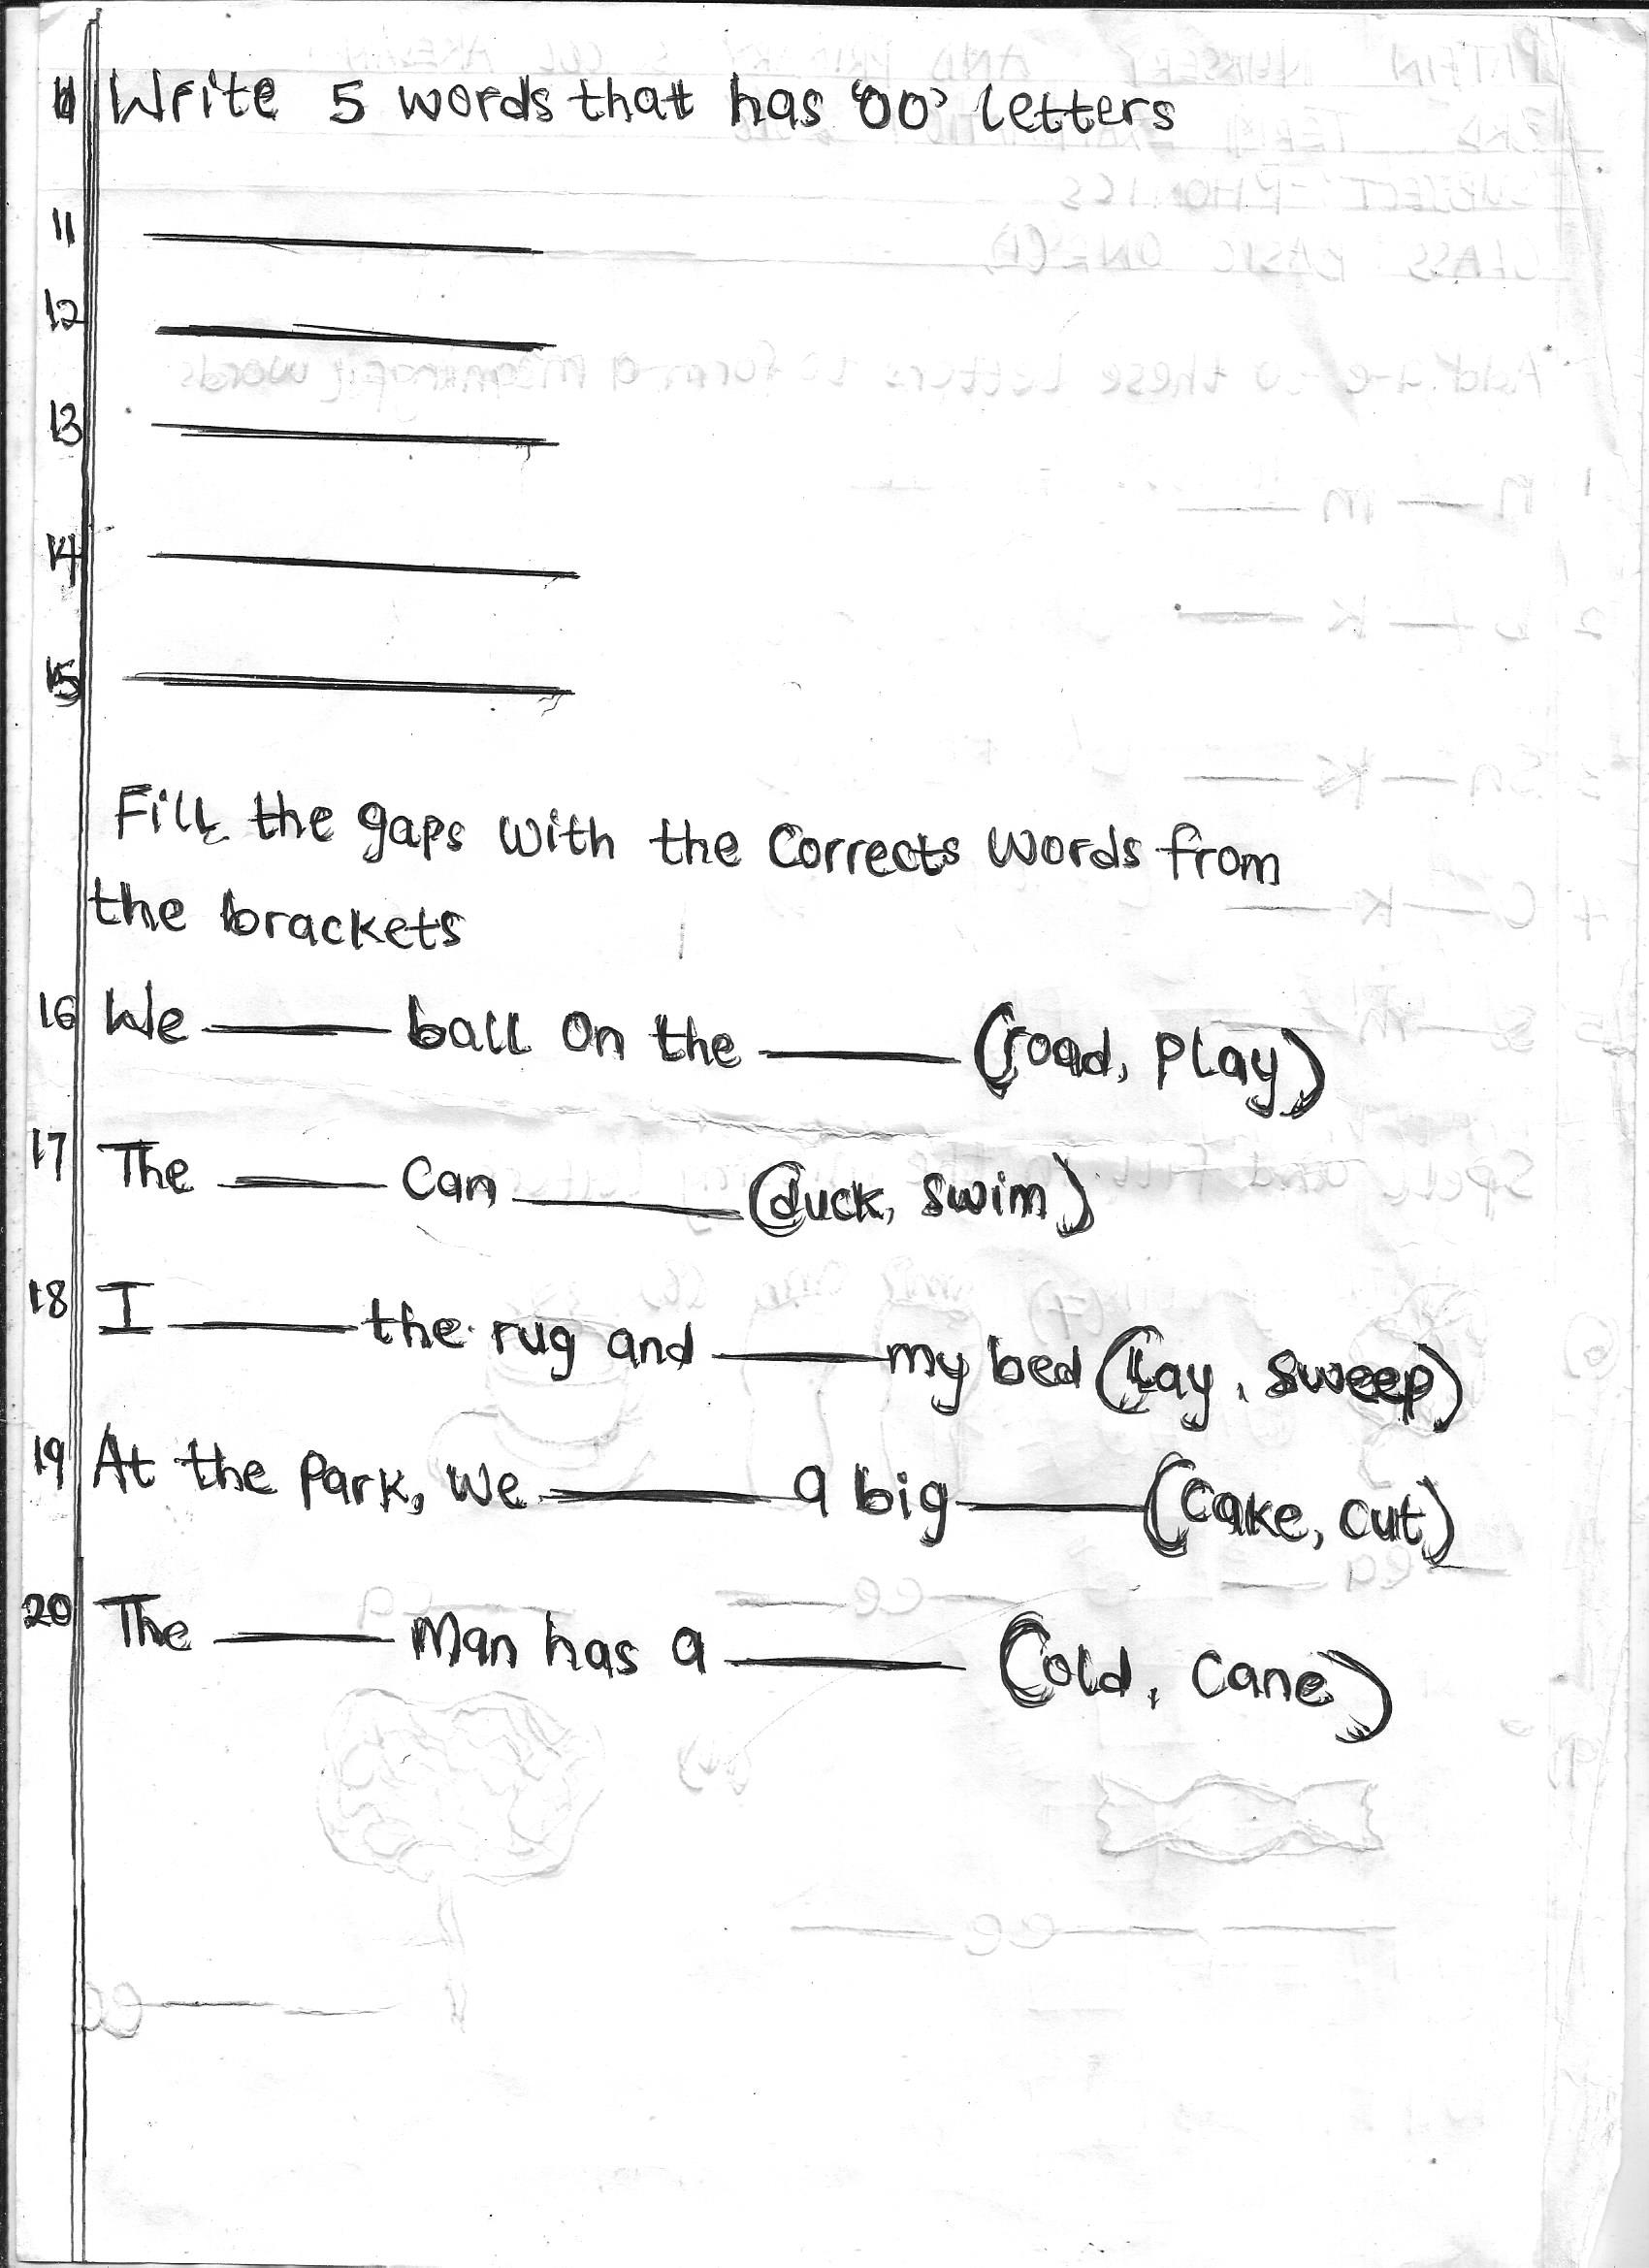 Write 5 words that has "oo" letters
11 ______
12 ______
13 ______
14 ______
15 ______
Fill the gaps with the Corrects words from
the brackets
16 We ______ ball on the ______ (road, play)
17 The ______ can ______ (duck, swim)
18 I ______ the rug and ______ my bed (Lay, sweep)
19 At the Park, we ______ a big ______ (cake, cut)
20 The ______ Man has a ______ (old, cane)